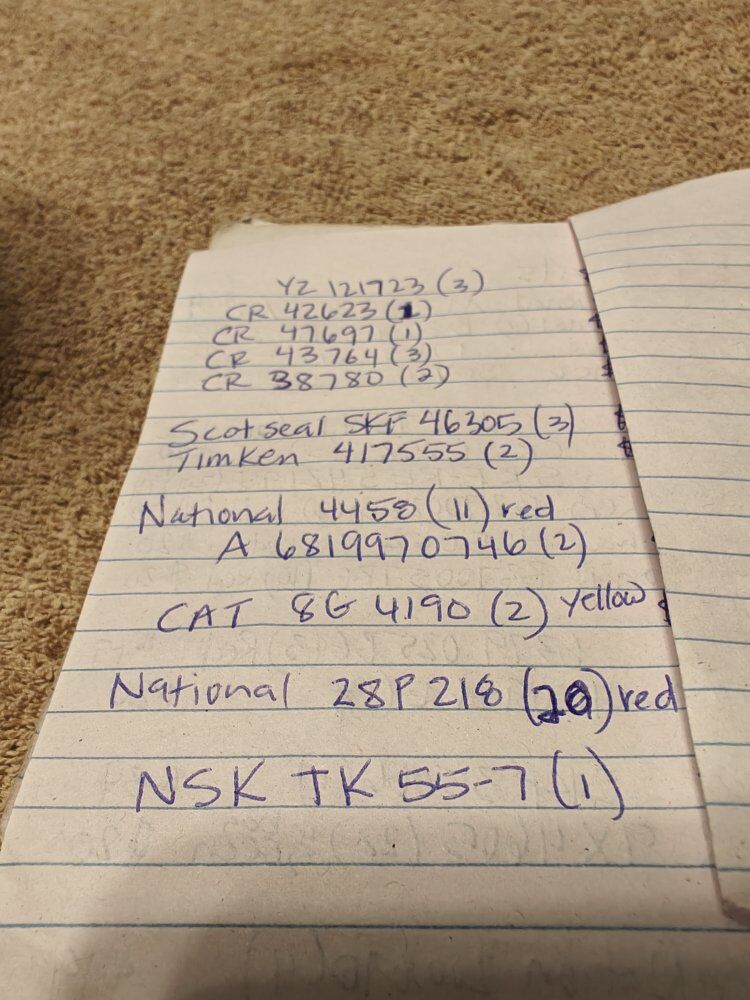 YZ 121723 (3)
CR 42623 (1)
CR 47697 (1)
CR 43764 (3)
CR 38780 (2)
Scotseal SKF 46305 (3)
Timken 417555 (2)
National 4458 (11) red
A 6819970746 (2)
CAT 8G 4190 (2) Yellow
National 28P218 (20) red
NSK TK 55-7 (1)